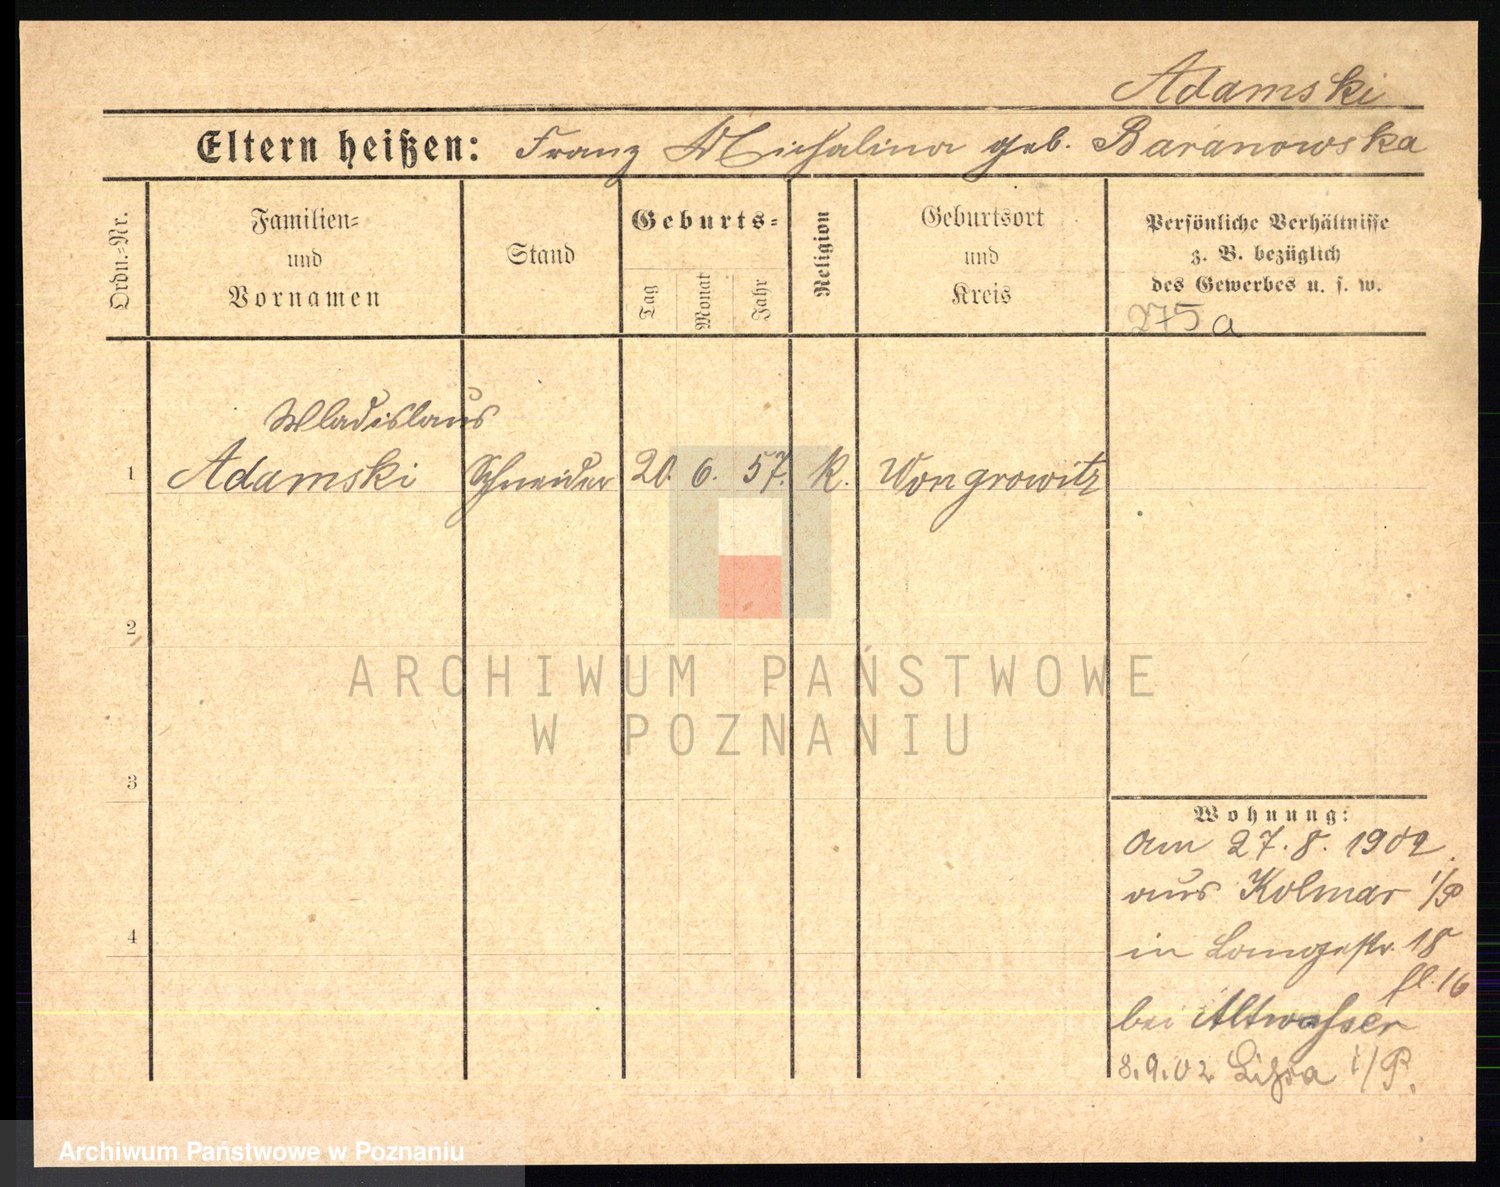 Adamski
Eltern heißen: Franz Michalina geb. Baranowska
Ordn.-Nr.
Familien-
und
Vornamen
Stand
Geburts-
Tag
Monat
Jahr
Religion
Geburtsort
und
Kreis
Persönliche Verhältnisse
z. B. bezüglich
des Gewerbes u. s. w.
275a
Wladislaus
1 Adamski Schneider 20. 6. 57. K. Wongrowitz
2
ARCHIWUM PAŃSTWOWE
W POZNANIU
3
Wohnung:
am 27.8. 1902
aus Kolmar i/P
in Langestr. 18
bei Altwasser
8.9.02 Lissa i/P.
4
Archiwum Państwowe w Poznaniu